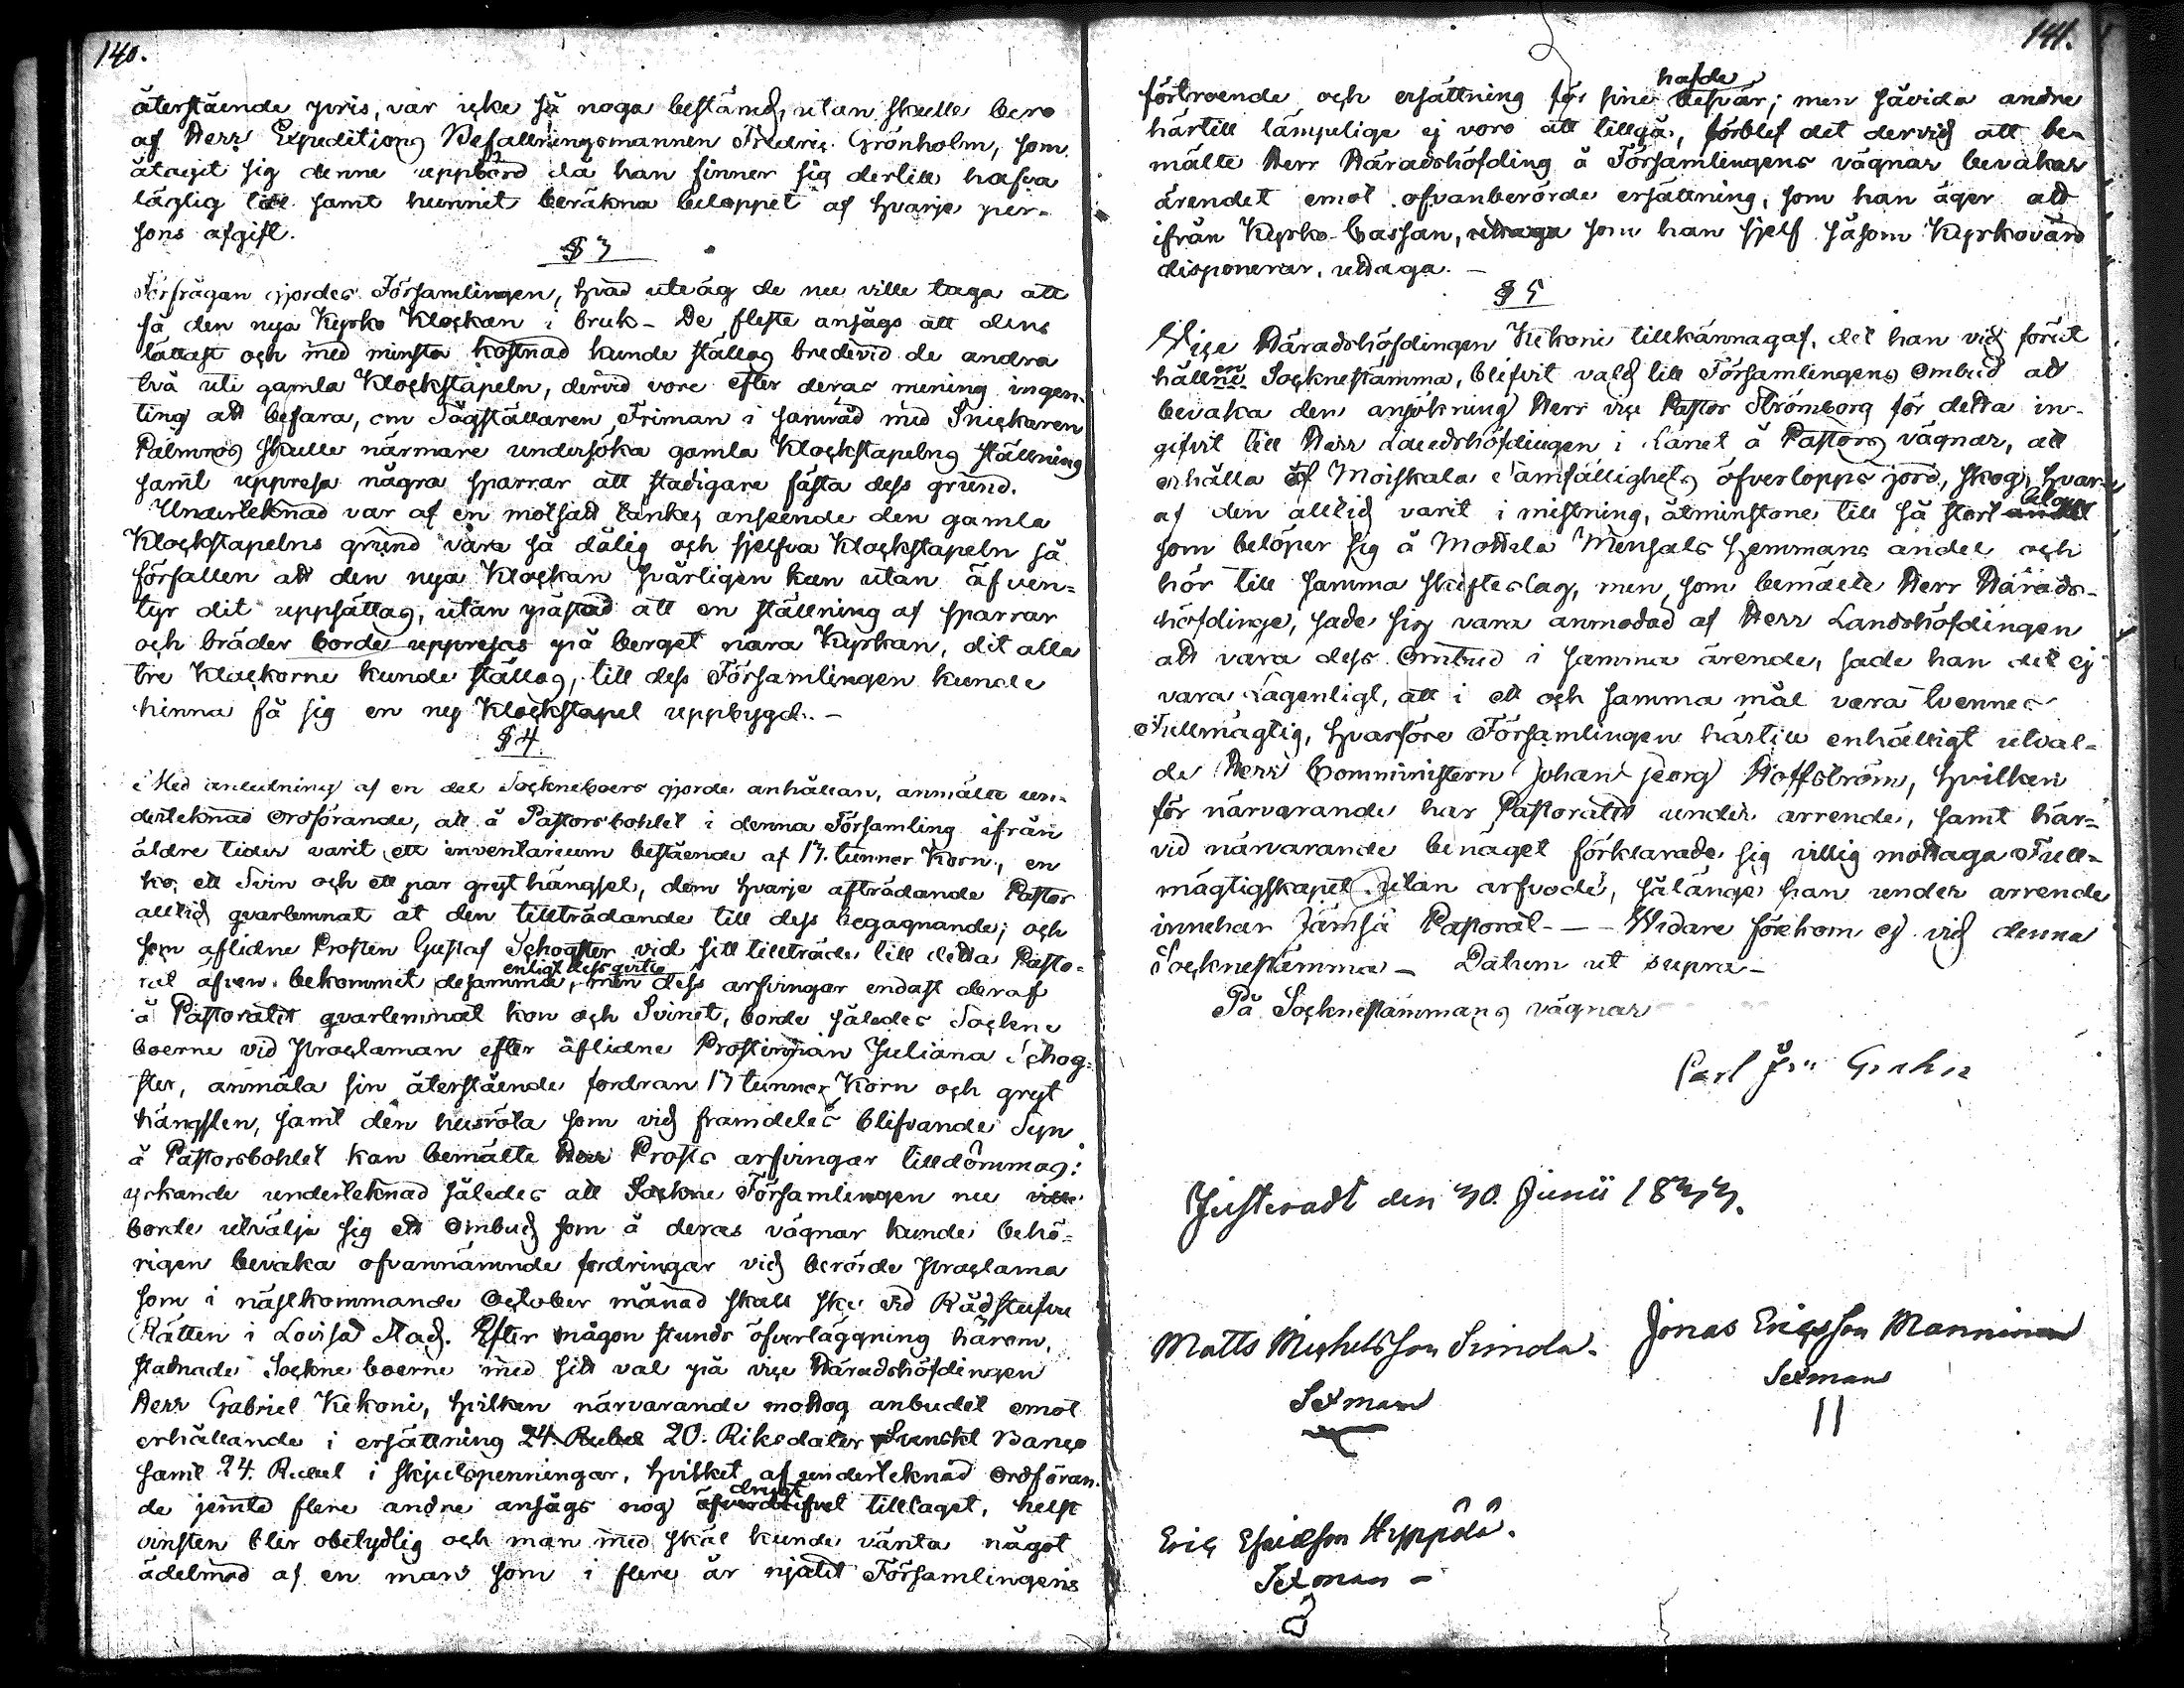 140.
återstående pris, var icke så noga bestämd, utan skulle bero
af Herr Expeditions Befallningsmannen Fredric Grönholm, som
åtagit sig denne uppbörd då han finner sig dertill hafva
läglig tid samt hunnit beräkna beloppet af hvarje per-
sons afgift.
§ 3
Förfrågan gjordes Församlingen, hvad utväg de nu ville taga att
få den nya Kyrko Klockan i bruk - De fleste ansågs att dens
lättast och med minsta kostnad kunde ställas bredevid de andra
två uti gamla Klockstapeln, dervid vore efter deras mening ingen-
ting att befara, om Sågställaren Friman i samråd med Snickaren
Palmros skulle närmare undersöka gamla Klockstapelns ställning
samt uppresa några sparrar att stadigare fästa dess grund.
Underteknad var af en motsatt tanke, anseende den gamla
Klockstapelns grund vara så dålig och sjelfva Klockstapeln så
förfallen att den nya Klockan svårligen kan utan äfven-
tyr dit uppsättas, utan påstod att en ställning af sparrar
och bräder borde uppresas på berget nära Kyrkan, dit alla
tre Klockorne kunde ställas, till dess Församlingen kunde
hinna få sig en ny Klockstapel uppbygd. -
§ 4.
Med anledning af en del Sockneboers gjorde anhållan, anmälte un-
derteknad Ordförande, att å Pastorsbohlet i denna Församling ifrån
äldre tider varit ett inventarium bestående af 13. tunnor Korn, en
ko, ett Svin och ett par gryt hängsel, dem hvarje afträdande Pastor
alltid qvarlemnat åt den tillträdande till dess begagnande; och
som aflidne Prosten Gustaf Schogster vid sitt tillträde till detta Pasto-
enligt dess qvitto
rat äfven bekommit desamma, men dess arfvingar endast deraf
å Pastoratet qvarlemnat kon och Svinet, borde således Sockne
boerne vid Proclaman efter aflidne Prostinnan Juliana Schog-
ster, anmäla sin återstående fordran 13 tunnor Korn och gryt
hängslen, samt den husröta som vid framdeles blifvande Syn
å Pastorsbohlet kan bemälte Herr Prosts arfvingar tilldömmas:
yrkande underteknad således att Sockne Församlingen nu ville
borde utvälja sig ett Ombud som å deras vägnar kunde behö-
rigen bevaka ofvannämnde fordringar vid berörde Proclama
som i nästkommande October månad skall ske vid Rådstufvu
Rätten i Lovisa Stad. Efter någon stunds öfverläggning härom,
stadnade Sockne boerne med sitt val på vice Häradshöfdingen
Herr Gabriel Kekoni, hvilken närvarande mottog anbudet emot
erhållande i ersättning 24. Rubel 20. Riksdaler Svenskt Banco
samt 24. Rubel i skjutspenningar, hvilket af underteknad Ordföran-
drygt
de jemte flere andre ansågs nog öfverdrifvet tilltaget, helst
vinsten blir obetydlig och man med skäl kunde vänta något
ädelmod af en man som i flere år njutit Församlingens
141.
hafde
förtroende och ersättning för sine besvär; men såvida andre
härtill lämpelige ej voro att tillgå, förblef det dervid att be-
mälte Herr Häradshöfding å Församlingens vägnar bevakar
ärendet emot ofvanberörde ersättning, som han äger att
ifrån Kyrko Cassan, uttaga som han sjelf såsom Kyrkovärd
disponerar, uttaga. -
§ 5
Vice Häradshöfdingen Kekoni tillkännagaf, det han vid förut
hållen Socknestämma, blifvit vald till Församlingens Ombud att
bevaka den ansökning Herr vice Pastor Strömborg för detta in-
gifvit till Herr Landshöfdingen i Länet å Pastors vägnar, att
erhålla af Moiskala Samfällighets öfverlopps jord, skog, hvar-
af den alltid varit i mistning, åtminstone till så stort andel
belopp
som belöper sig å Mottala Mensals hemmans andel och
hör till samma skifteslag, men som bemälte Herr Härads-
höfdinge, sade sig vara anmodad af Herr Landshöfdingen
att vara dess Ombud i samma ärende, sade han det ej
vara Lagenligt, att i ett och samma mål vara tvennes
Fullmägtig, hvarföre Församlingen härtill enhälligt utval-
de Herr Comministern Johan Georg Hoffström, hvilken
för närvarande har Pastoratet under arrende, samt här-
vid närvarande benäget förklarade sig villig mottaga Full-
mägtigskapet utan arfvode, sålänge han under arrende
innehar Jämsä Pastorat. - - Widare förekom ej vid denna
Socknestämma - Datum ut supra -
På Socknestämmans vägnar
Carl Grahn
Justeradt den 30. Junii 1833.
Matts Michelsson Simola.
Sexman
Jonas Ericsson Manninen
Sexman
Eric Hyppölä.
Sexman -